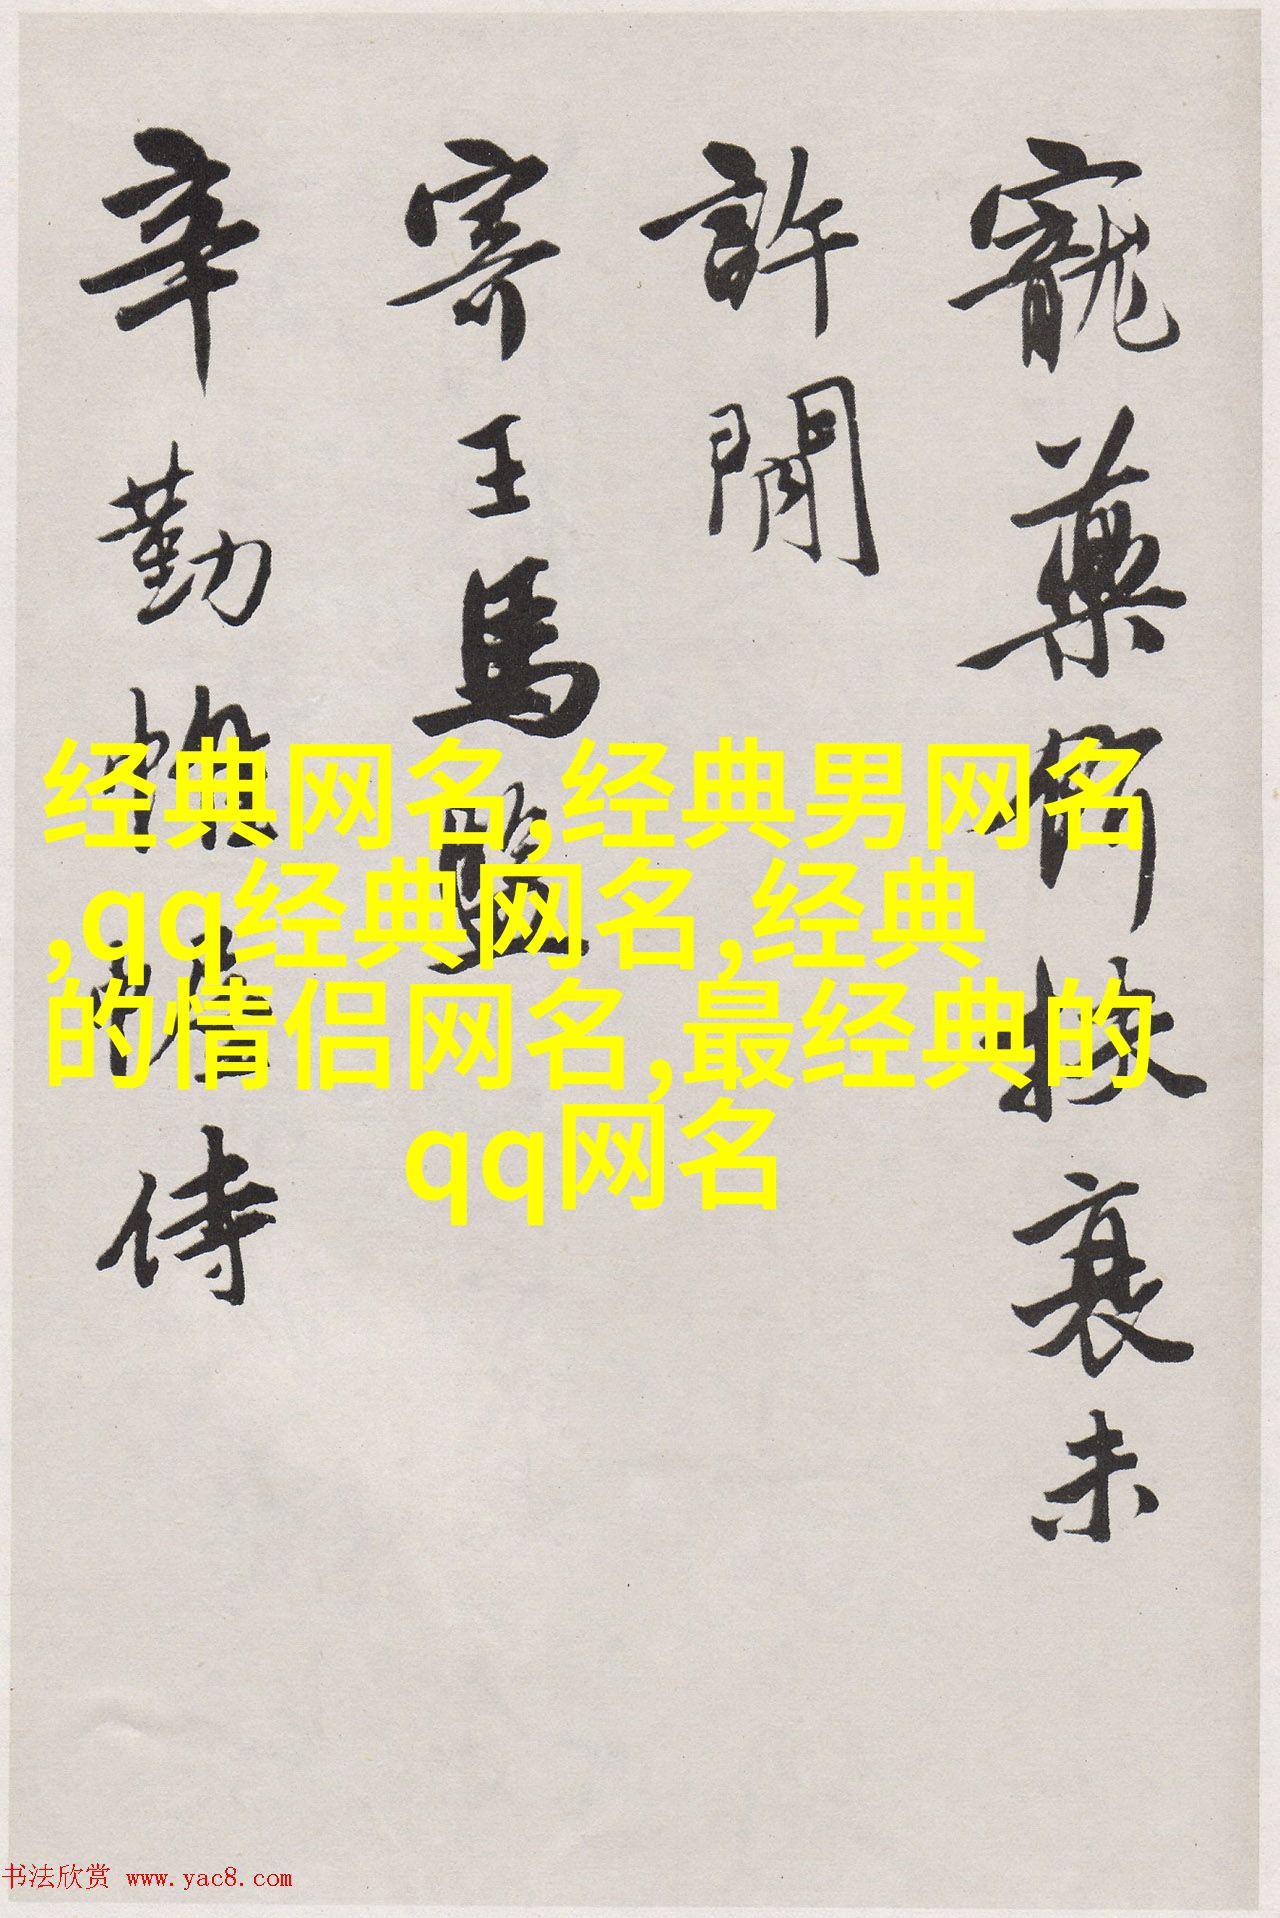 寵藥所扶衰未
許閒
寄王馬監
辛勤惟帳侍
经典网名,经典男网名
,qq经典网名,经典
的情侣网名,最经典的
qq网名
书法欣赏 www.yac8.com